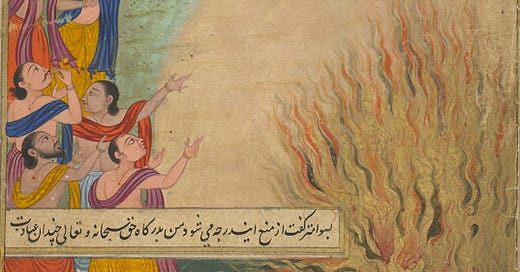 بسوامتر گفت از منع ایندر چه می شود من بدرکاه حق سبحانه و تعالی چندان عبادت